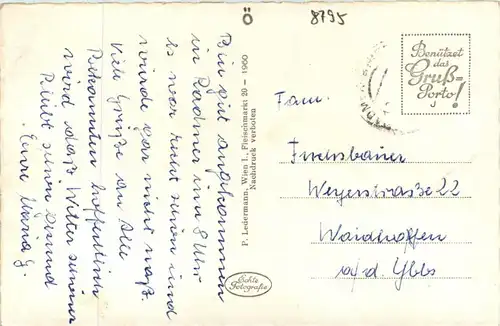 Ö
8795
Bin gut angekommen
in Radmer um 8 Uhr
es war recht schön und
wurde gar nicht naß.
Viele Grüße an Alle
Bekannten hoffentlich
wird das Wetter schöner
Bleibt schön gesund
Eure
P. Ledermann, Wien I., Fleischmarkt 20 – 1960
Nachdruck verboten
Echte
Fotografie
Benützet
das
Gruß-
Porto!
Fam.
Fuchsbauer
Weyerstraße 22
Waidhofen
a/d. Ybbs